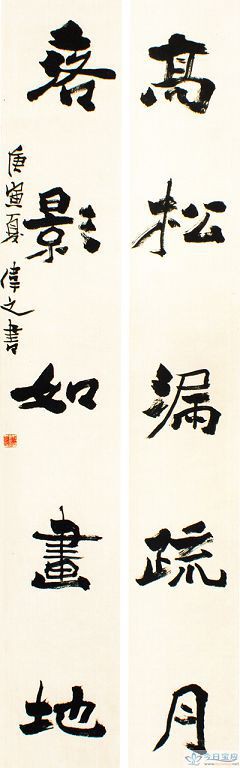 高松漏疏月
落影如畫地
庚寅夏偉之書
今日宝库